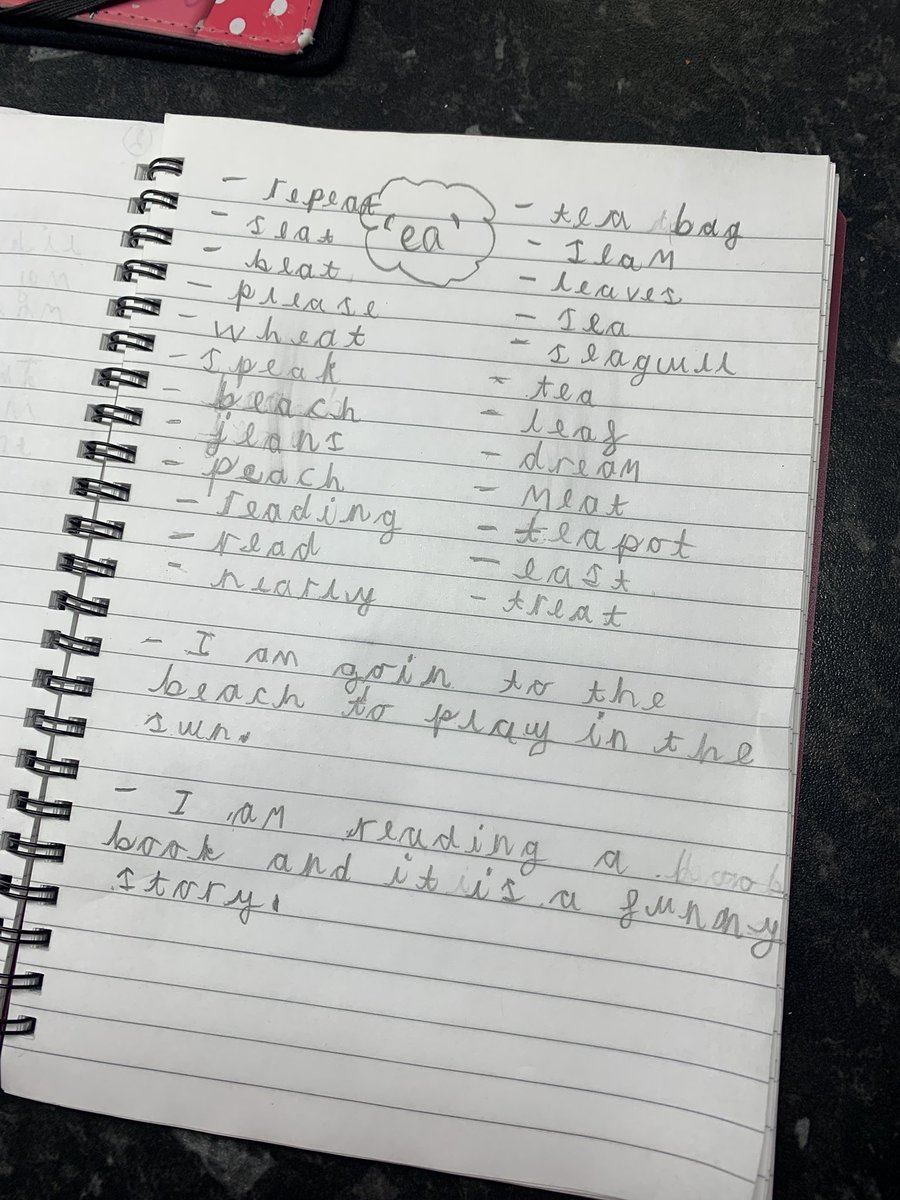 'ea'
- repeat
- seat
- beat
- please
- wheat
- speak
- beach
- jeans
- peach
- reading
- read
- nearly
- tea bag
- seam
- leaves
- sea
- seagull
- tea
- leaf
- dream
- meat
- teapot
- east
- treat
- I am goin to the
beach to play in the
sun.
- I am reading a
book and it is a funny
story.